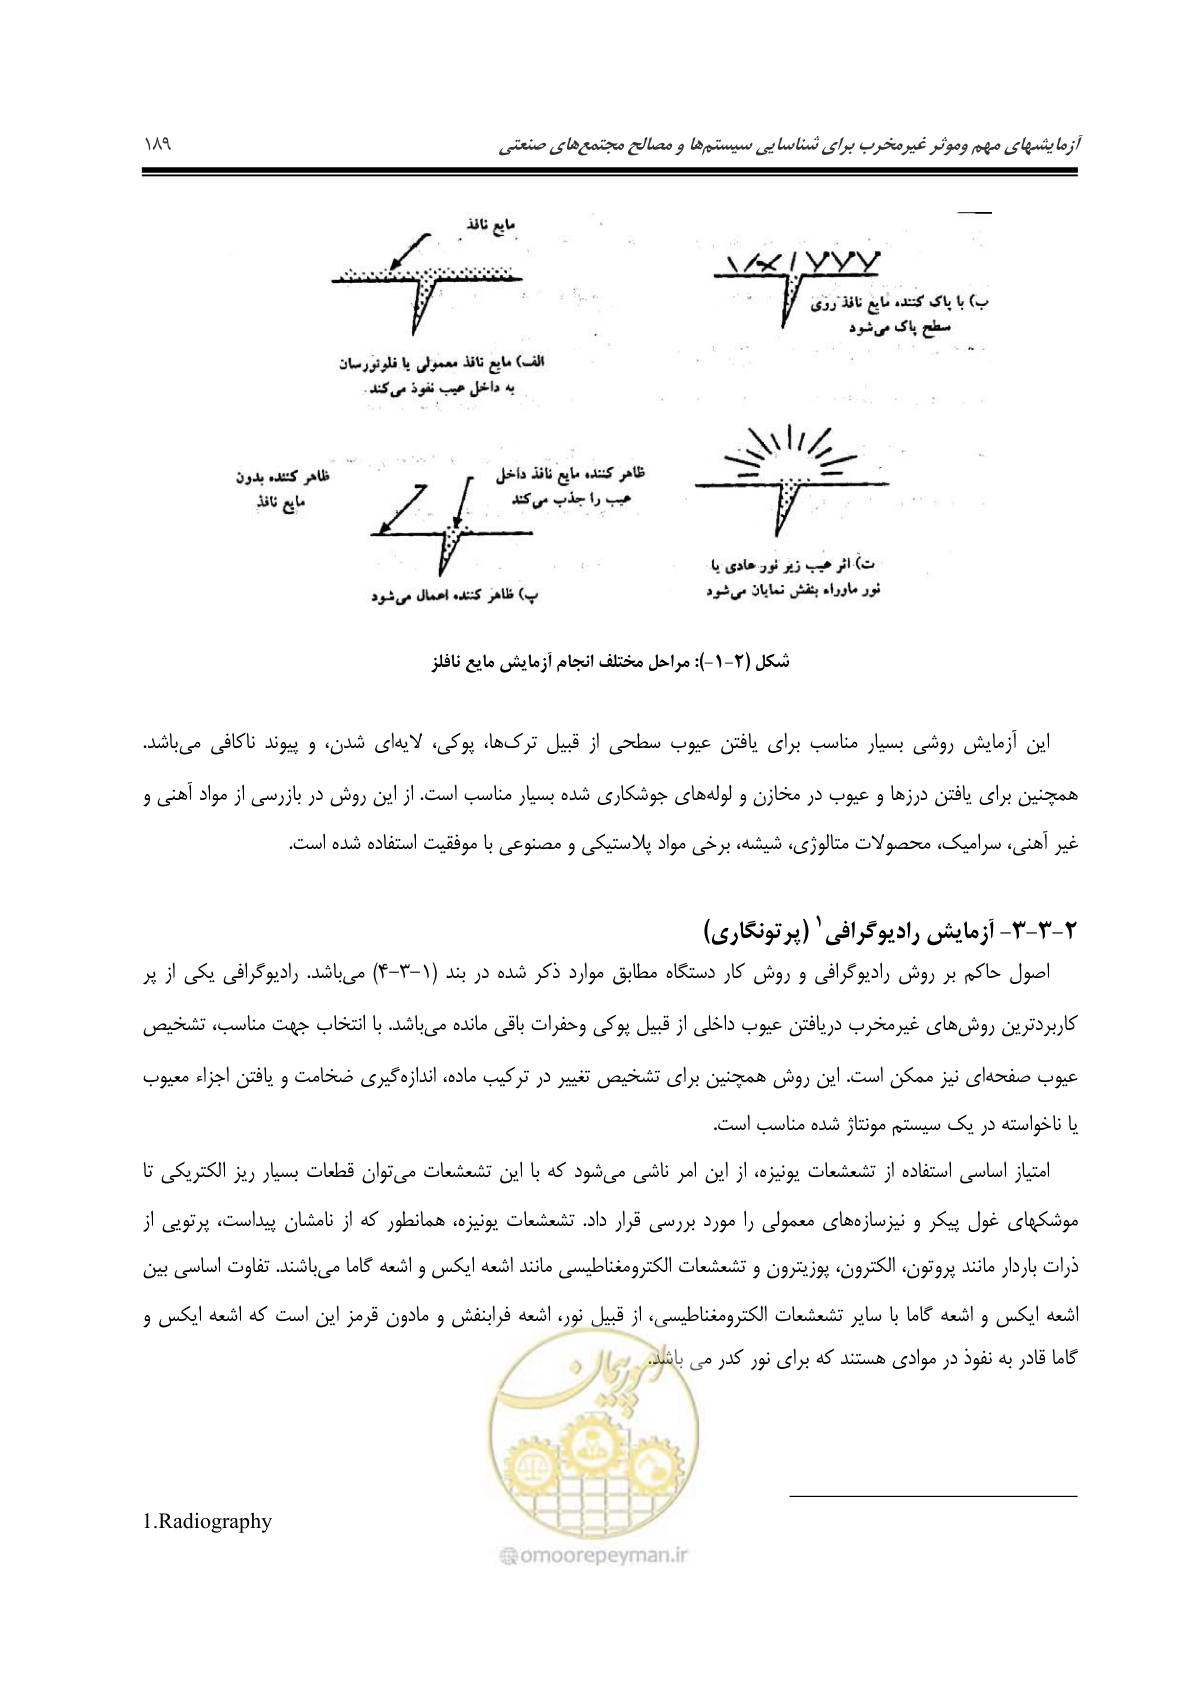 آزمایشهای مهم وموثر غیرمخرب برای شناسایی سیستم‌ها و مصالح مجتمع‌های صنعتی
۱۸۹
مایع نافذ
الف) مایع نافذ معمولی یا فلوئورسان
به داخل عیب نفوذ می‌کند
ب) با پاک کننده مایع نافذ روی
سطح پاک می‌شود
ظاهر کننده بدون
مایع نافذ
ظاهر کننده مایع نافذ داخل
عیب را جذب می‌کند
پ) ظاهر کننده اعمال می‌شود
ت) اثر عیب زیر نور عادی یا
نور ماوراء بنفش نمایان می‌شود
شکل (۲-۱-): مراحل مختلف انجام آزمایش مایع نافلز
این آزمایش روشی بسیار مناسب برای یافتن عیوب سطحی از قبیل ترک‌ها، پوکی، لایه‌ای شدن، و پیوند ناکافی می‌باشد.
همچنین برای یافتن درزها و عیوب در مخازن و لوله‌های جوشکاری شده بسیار مناسب است. از این روش در بازرسی از مواد آهنی و
غیر آهنی، سرامیک، محصولات متالوژی، شیشه، برخی مواد پلاستیکی و مصنوعی با موفقیت استفاده شده است.
۲-۳-۳- آزمایش رادیوگرافی۱ (پرتونگاری)
اصول حاکم بر روش رادیوگرافی و روش کار دستگاه مطابق موارد ذکر شده در بند (۱-۳-۴) می‌باشد. رادیوگرافی یکی از پر
کاربردترین روش‌های غیرمخرب دریافتن عیوب داخلی از قبیل پوکی وحفرات باقی مانده می‌باشد. با انتخاب جهت مناسب، تشخیص
عیوب صفحه‌ای نیز ممکن است. این روش همچنین برای تشخیص تغییر در ترکیب ماده، اندازه‌گیری ضخامت و یافتن اجزاء معیوب
یا ناخواسته در یک سیستم مونتاژ شده مناسب است.
امتیاز اساسی استفاده از تشعشعات یونیزه، از این امر ناشی می‌شود که با این تشعشعات می‌توان قطعات بسیار ریز الکتریکی تا
موشکهای غول پیکر و نیزسازه‌های معمولی را مورد بررسی قرار داد. تشعشعات یونیزه، همانطور که از نامشان پیداست، پرتویی از
ذرات باردار مانند پروتون، الکترون، پوزیترون و تشعشعات الکترومغناطیسی مانند اشعه ایکس و اشعه گاما می‌باشند. تفاوت اساسی بین
اشعه ایکس و اشعه گاما با سایر تشعشعات الکترومغناطیسی، از قبیل نور، اشعه فرابنفش و مادون قرمز این است که اشعه ایکس و
گاما قادر به نفوذ در موادی هستند که برای نور کدر می باشد.
امور پیمان
1.Radiography
@omoorepeyman.ir